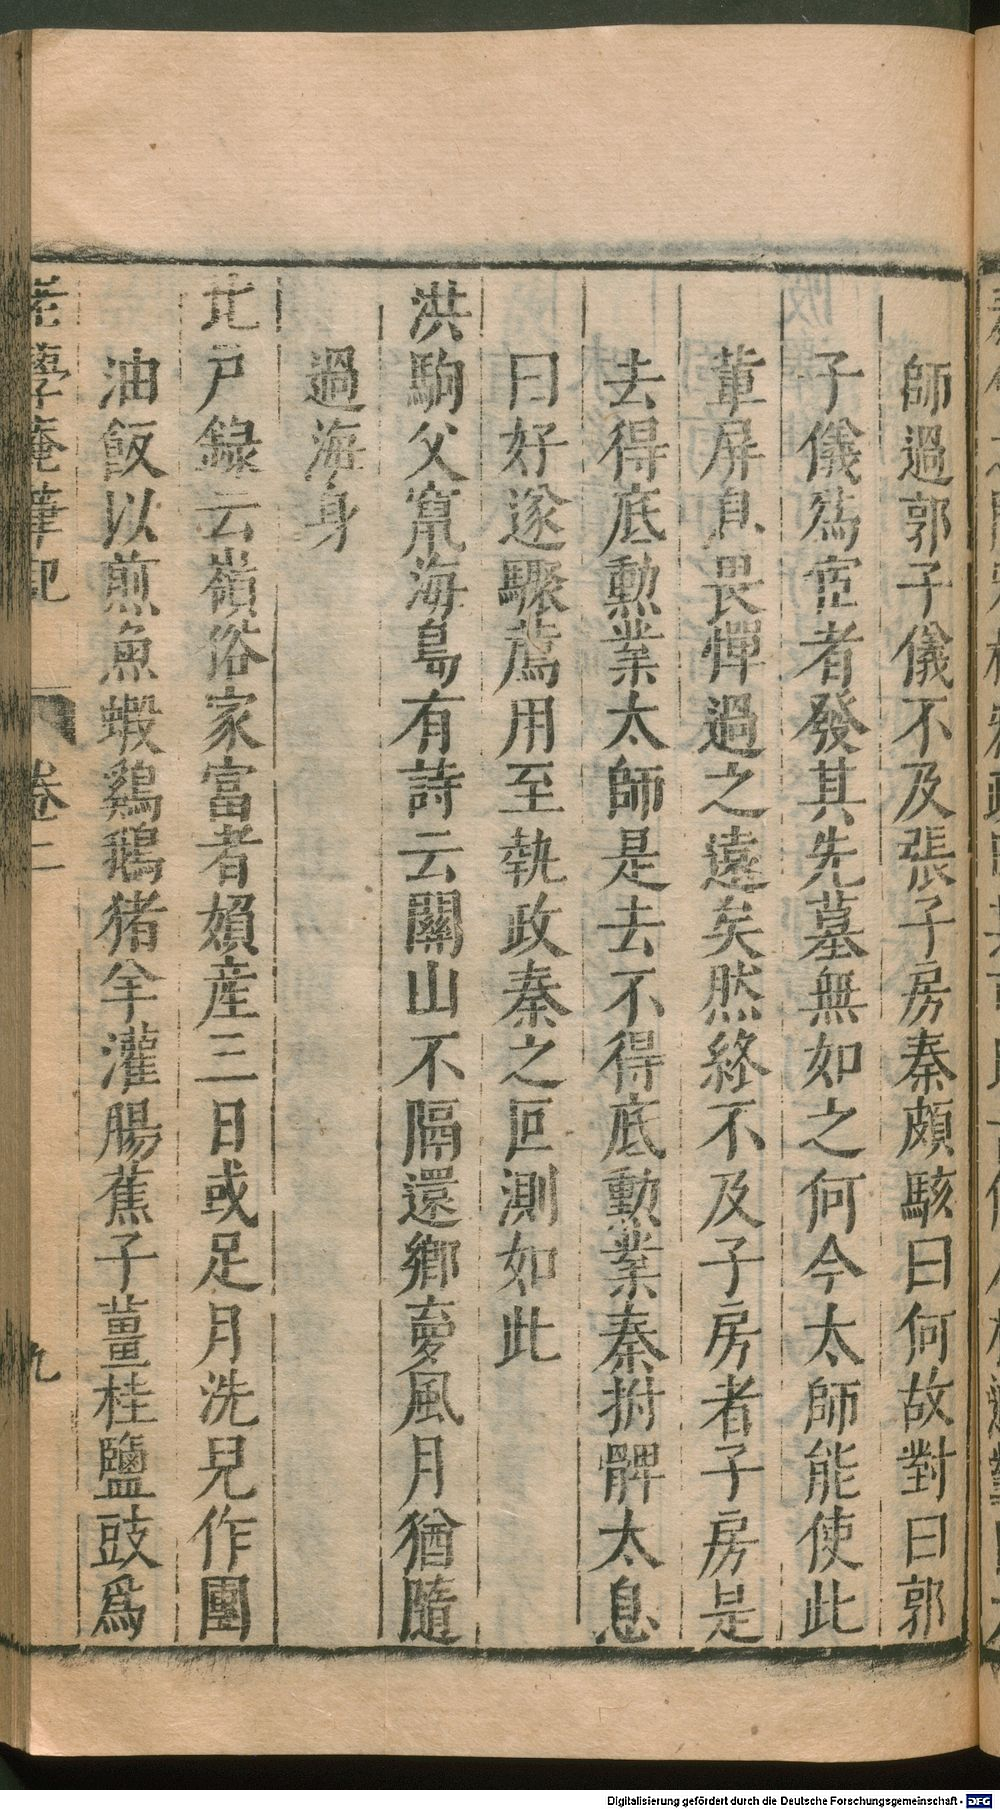 師過郭子儀不及張子房秦頗駭曰何故對曰郭
子儀為宦者發其先墓無如之何今太師能使此
輩屏息畏憚過之遠矣然終不及子房者子房是
去得底勳業太師是去不得底勳業秦拊髀太息
曰好遂驟薦用至執政秦之叵測如此
洪駒父竄海島有詩云關山不隔還鄉夢風月猶隨
過海身
北戶錄云嶺俗家富者婦產三日或足月洗兒作團
油飯以煎魚蝦鷄鵝猪羊灌腸蕉子薑桂鹽豉爲
老學庵筆記 卷二 九
Digitalisierung gefördert durch die Deutsche Forschungsgemeinschaft - DFG